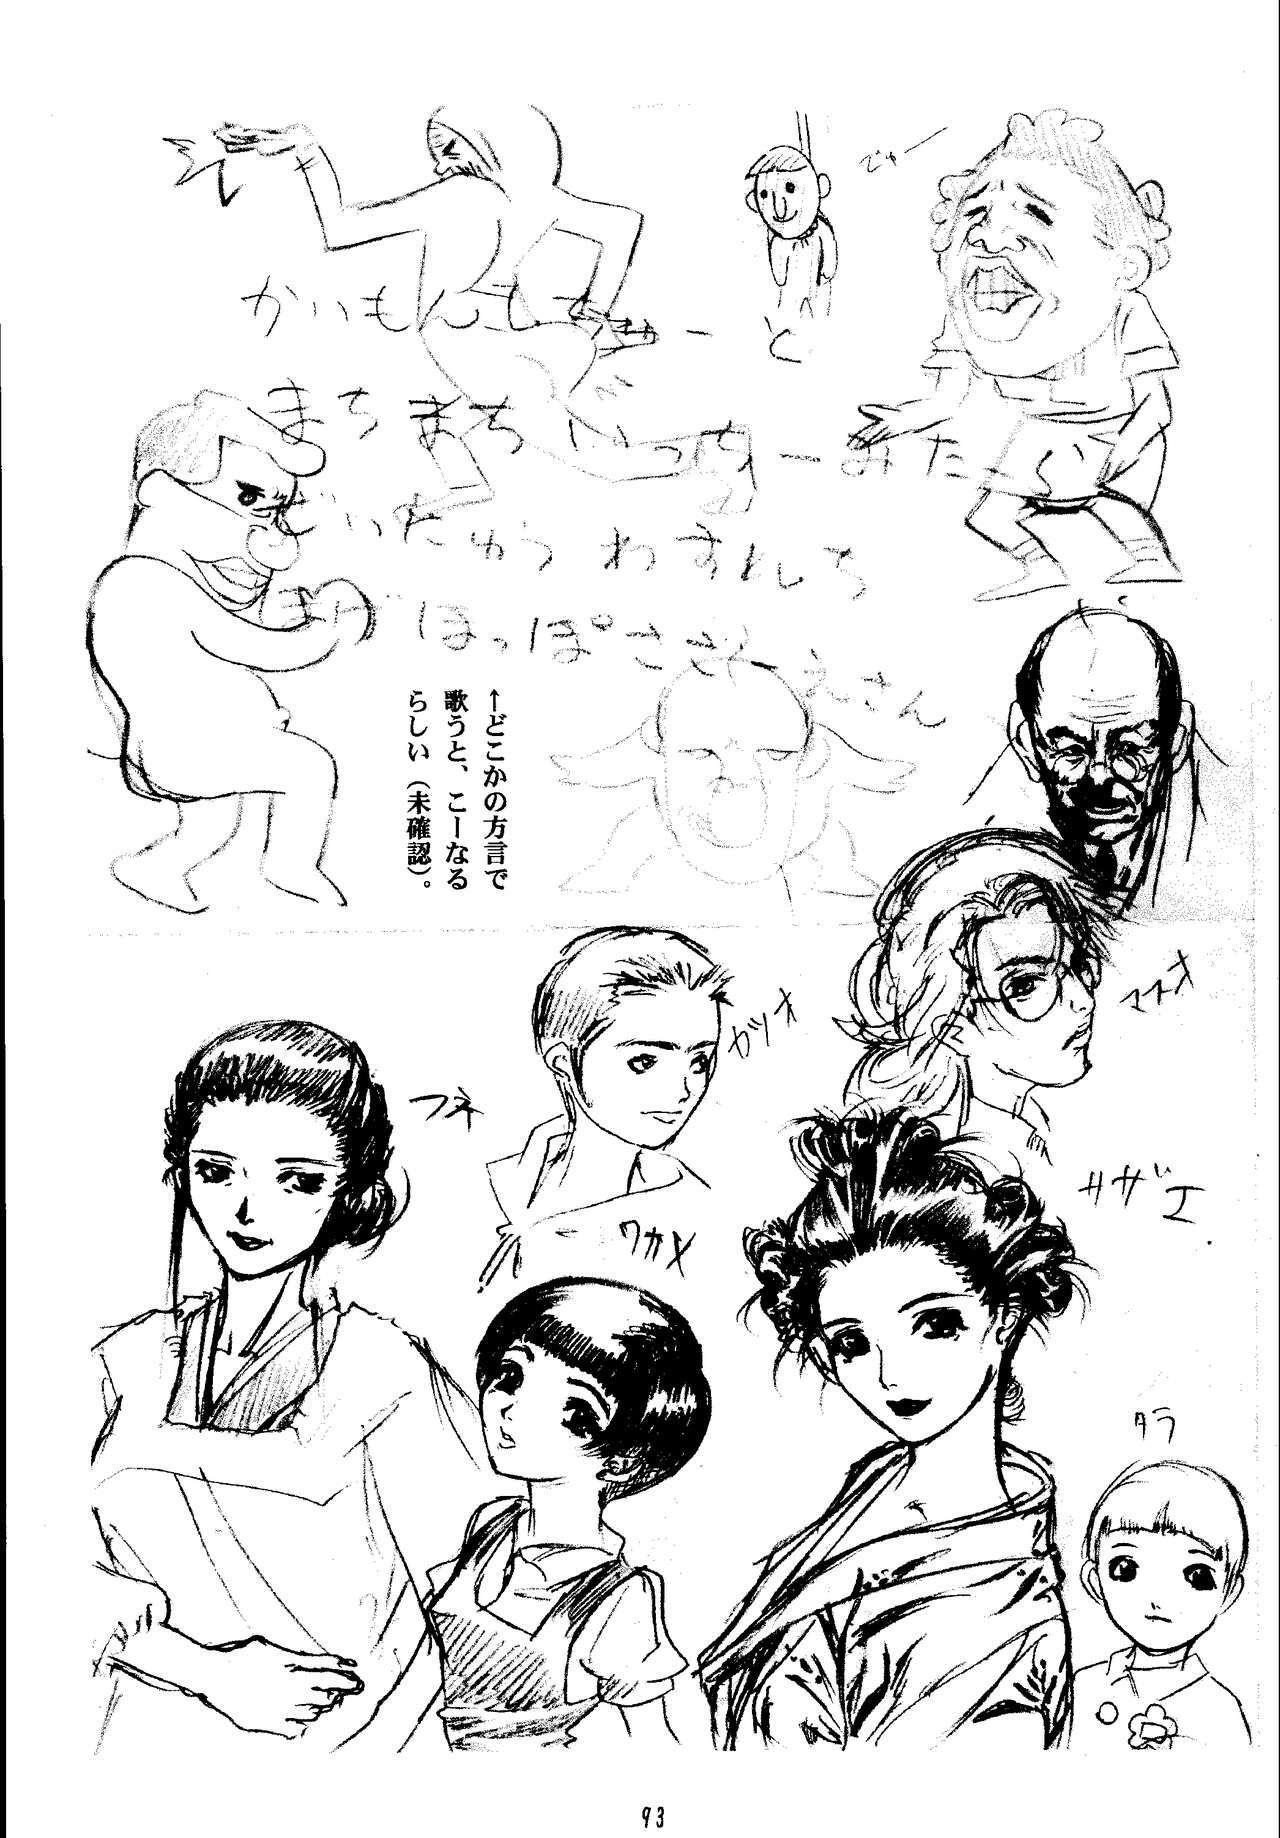 でゅー
かいもんしちゅーと
まちまちいっちーみたーら
ざいたゅうわすれち
まげほっぽささーえさん
←どこかの方言で
歌うと、こーなる
らしい（未確認）。
マスオ
カツオ
フネ
サザエ
ワカメ
タラ
93